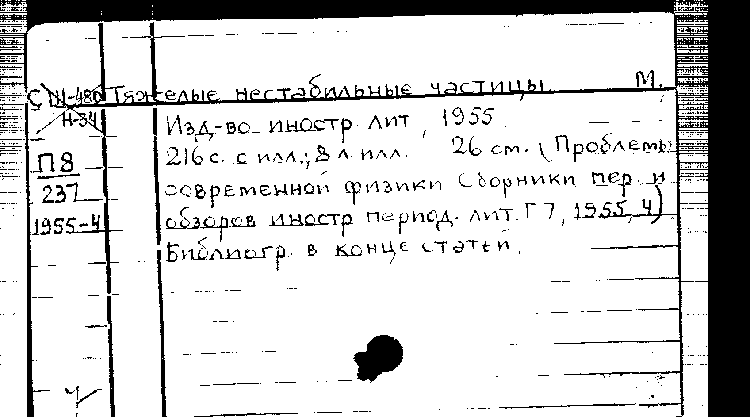 С Ш-480 Тяжелые нестабильные частицы М.
Н-34
Изд-во иностр лит, 1955
216 с. с илл.; 8 л илл. 26 см. (Проблемы
П8
237
современной физики Сборники пер. и
1955-4
обзоров иностр период. лит. Г 7, 1955, 4)
Библиогр. в конце статей.